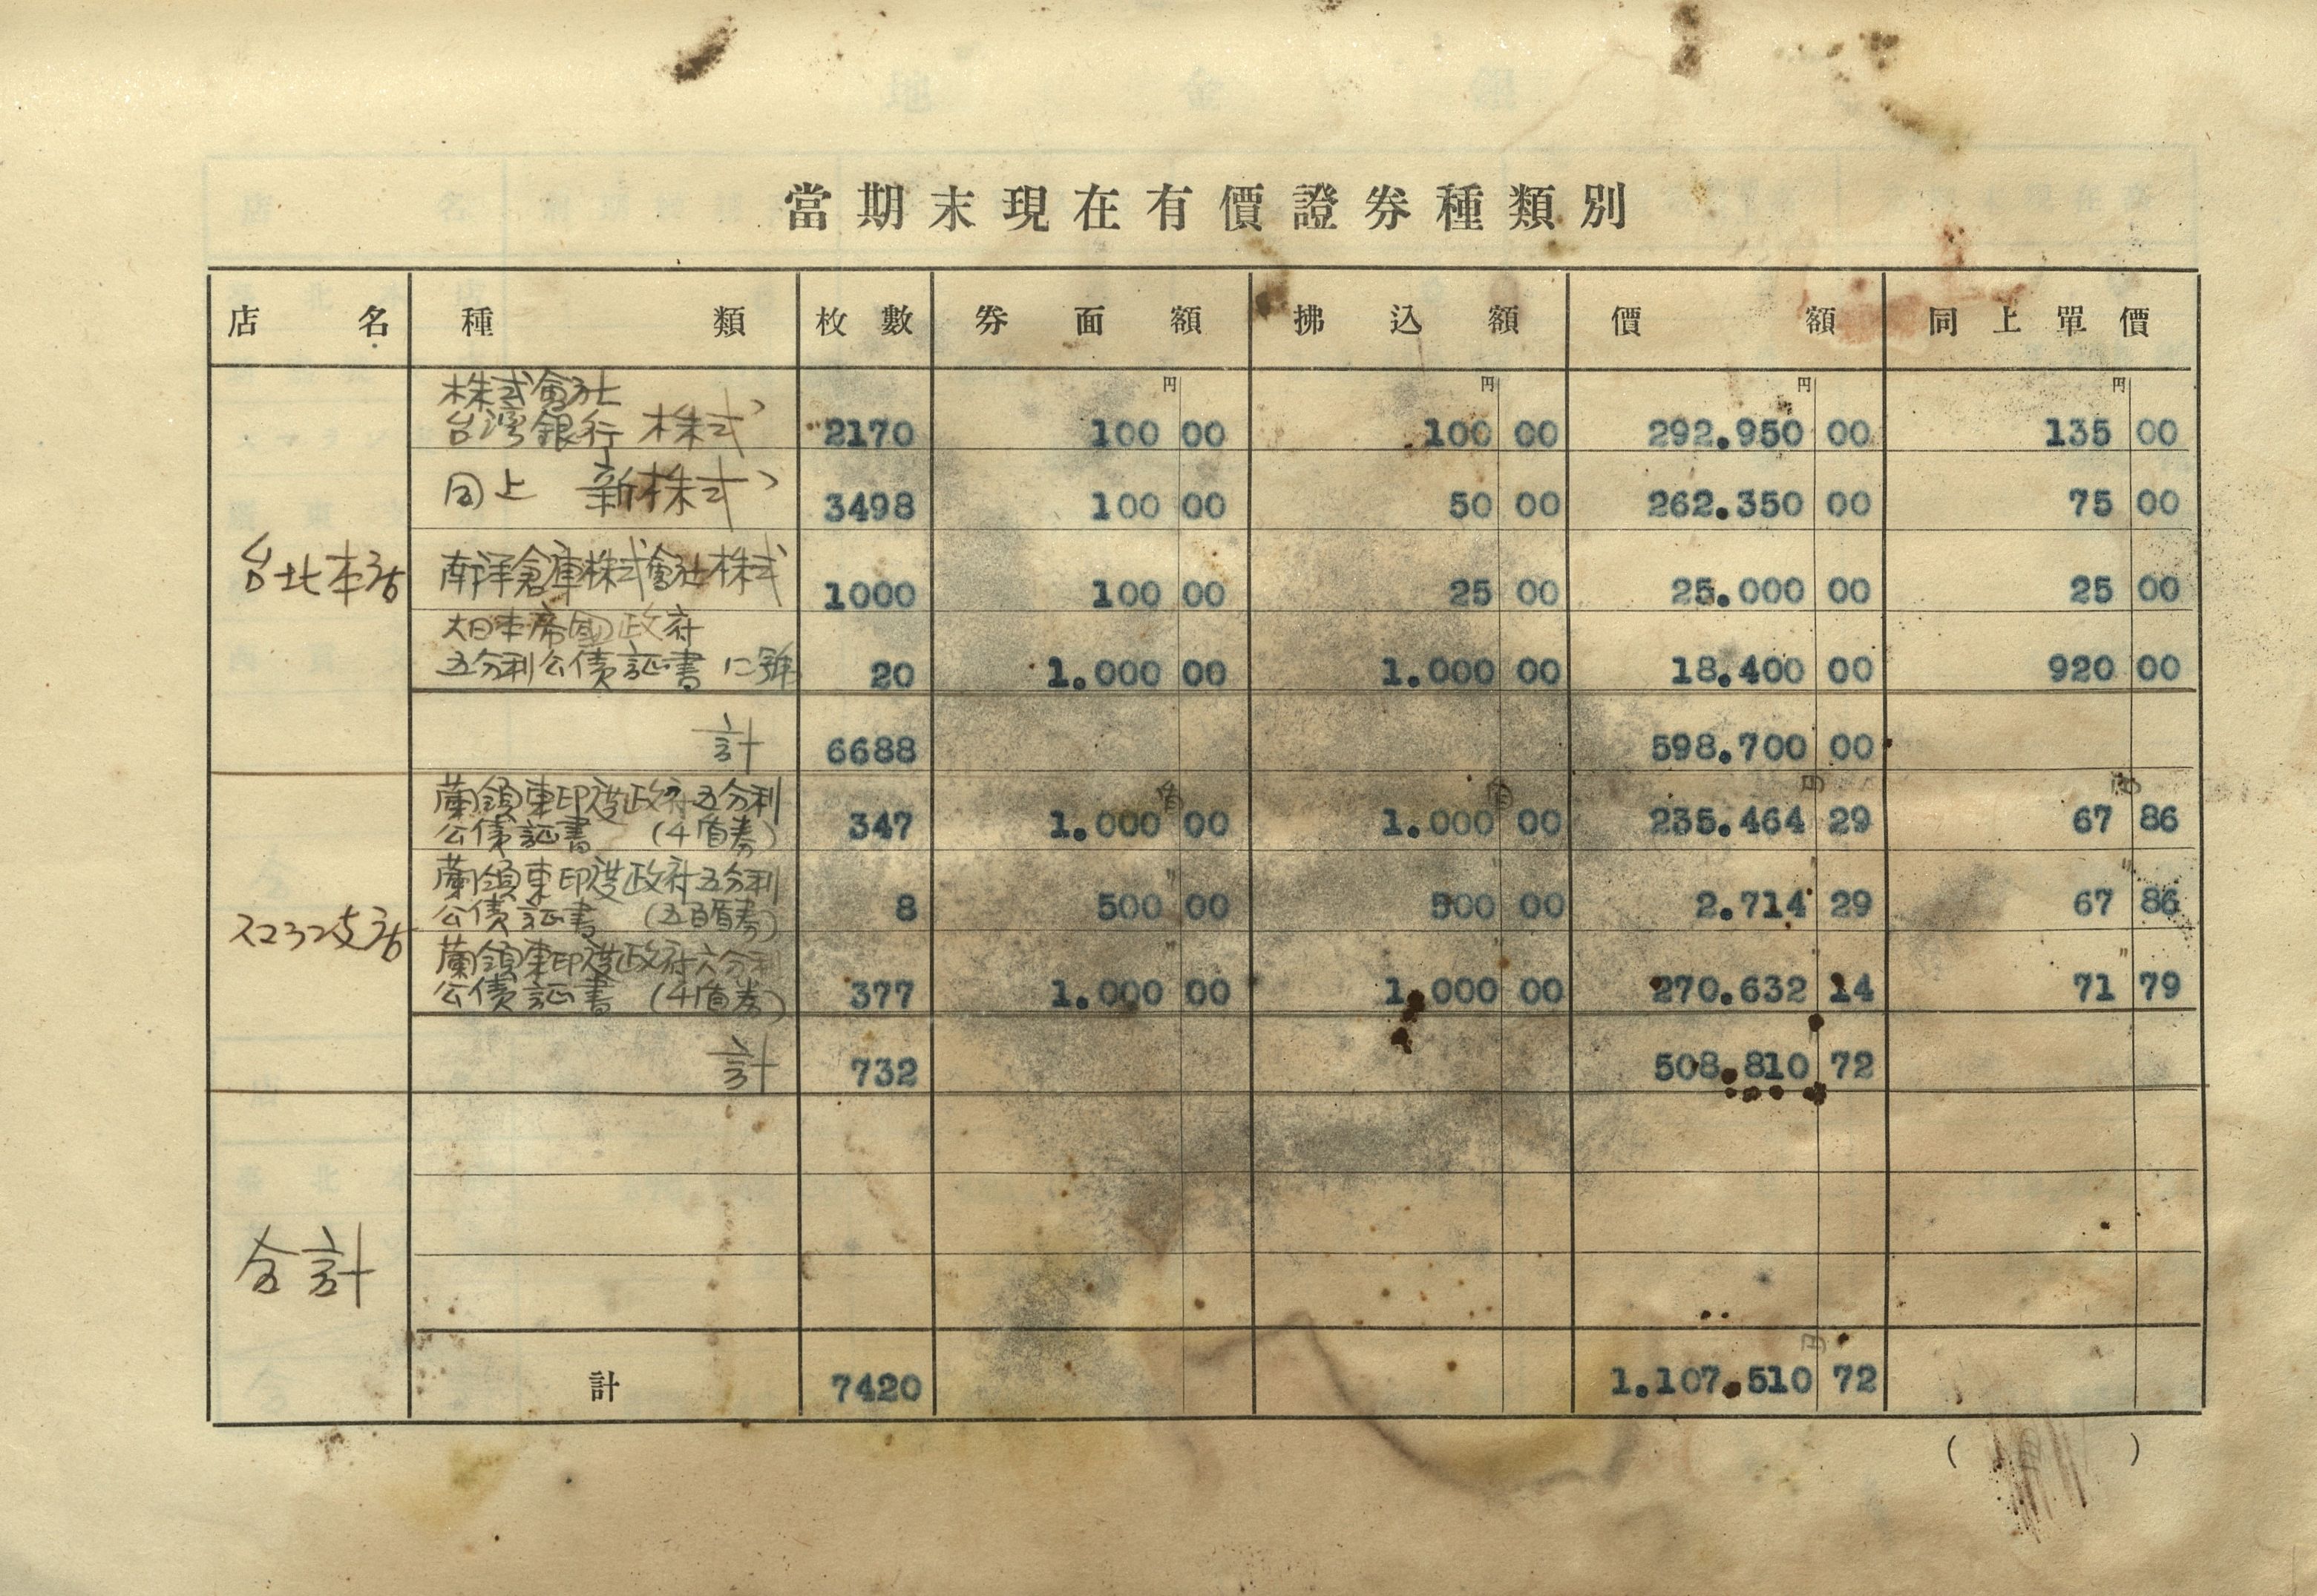 當期末現在有價證券種類別
店名 種類 枚數 券面額 拂込額 價額 同上單價
円 円 円 円
台北本店
株式會社
台湾銀行 株式 2170 100 00 100 00 292.950 00 135 00
同上 新株式 3498 100 00 50 00 262.350 00 75 00
南洋倉庫株式會社株式 1000 100 00 25 00 25.000 00 25 00
大日本帝國政府
五分利公債証書 に號 20 1.000 00 1.000 00 18.400 00 920 00
計 6688 598.700 00
支店
円 円
蘭領東印度政府五分利
公債証書 (千盾券) 347 1.000 00 1.000 00 235.464 29 67 86
蘭領東印度政府五分利
公債証書 (五百盾券) 8 500 00 500 00 2.714 29 67 86
蘭領東印度政府六分利
公債証書 (千盾券) 377 1.000 00 1.000 00 270.632 14 71 79
計 732 508.810 72
合計
円
計 7420 1.107.510 72
( )